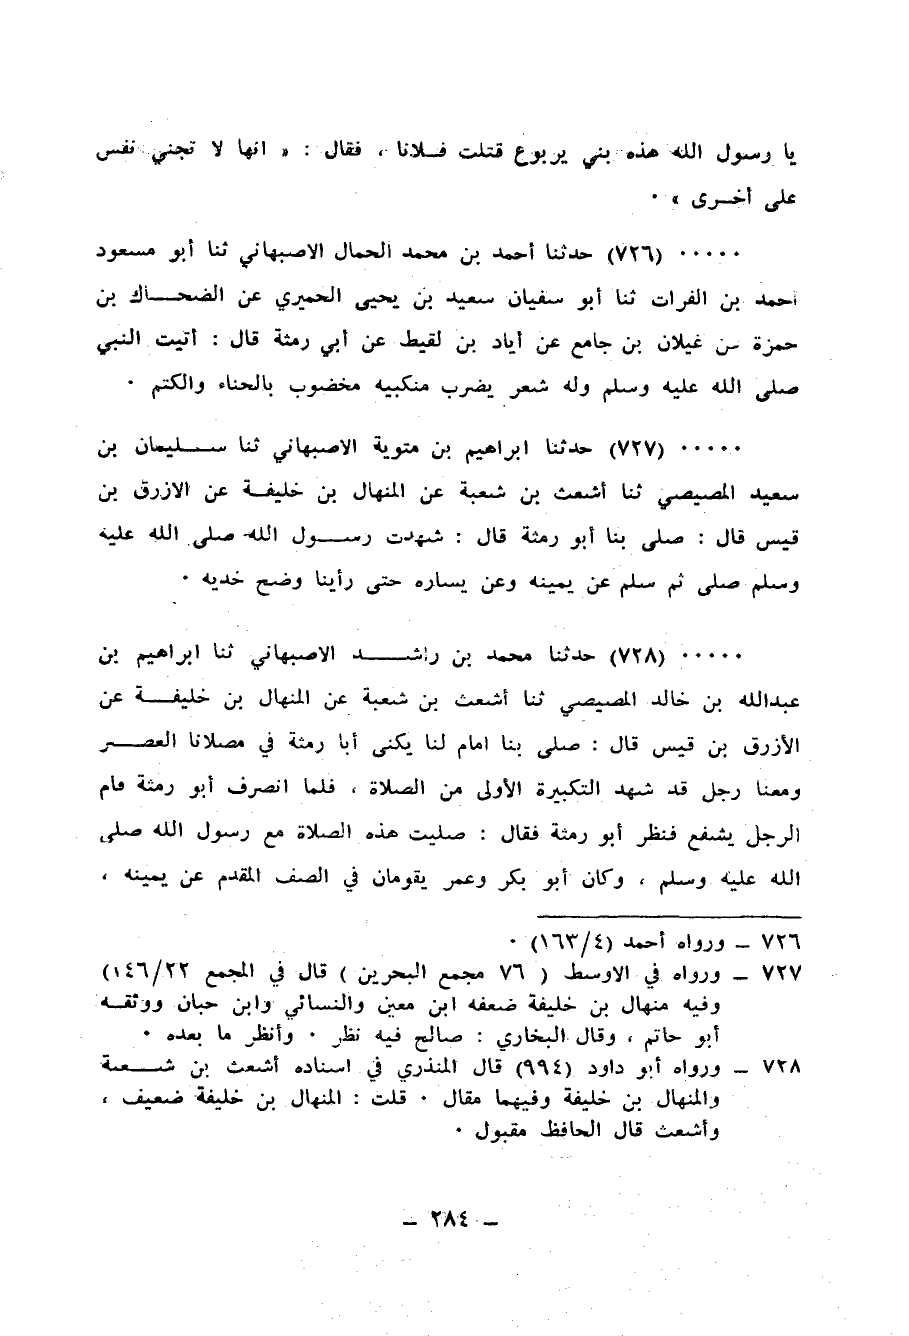 يا رسول الله هذه بني يربوع قتلت فلانا ، فقال : « انها لا تجني نفس
على أخرى » ٠
٠٠٠٠٠ (٧٢٦) حدثنا أحمد بن محمد الحمال الاصبهاني ثنا أبو مسعود
احمد بن الفرات ثنا أبو سفيان سعيد بن يحيى الحميري عن الضحاك بن
حمزة عن غيلان بن جامع عن أياد بن لقيط عن أبي رمثة قال : أتيت النبي
صلى الله عليه وسلم وله شعر يضرب منكبيه مخضوب بالحناء والكتم ٠
٠٠٠٠٠ (٧٢٧) حدثنا ابراهيم بن متوية الاصبهاني ثنا سليمان بن
سعيد المصيصي ثنا أشعث بن شعبة عن المنهال بن خليفة عن الازرق بن
قيس قال : صلى بنا أبو رمثة قال : شهدت رسول الله صلى الله عليه
وسلم صلى ثم سلم عن يمينه وعن يساره حتى رأينا وضح خديه ٠
٠٠٠٠٠ (٧٢٨) حدثنا محمد بن راشد الاصبهاني ثنا ابراهيم بن
عبدالله بن خالد المصيصي ثنا أشعث بن شعبة عن المنهال بن خليفة عن
الأزرق بن قيس قال : صلى بنا امام لنا يكنى أبا رمثة في مصلانا العصر
ومعنا رجل قد شهد التكبيرة الأولى من الصلاة ، فلما انصرف أبو رمثة قام
الرجل يشفع فنظر أبو رمثة فقال : صليت هذه الصلاة مع رسول الله صلى
الله عليه وسلم ، وكان أبو بكر وعمر يقومان في الصف المقدم عن يمينه ،
٧٢٦ – ورواه أحمد (٤/١٦٣) ٠
٧٢٧ – ورواه في الاوسط ( ٧٦ مجمع البحرين ) قال في المجمع ١٤٦/٢٢)
وفيه منهال بن خليفة ضعفه ابن معين والنسائي وابن حبان ووثقه
أبو حاتم ، وقال البخاري : صالح فيه نظر ٠ وأنظر ما بعده ٠
٧٢٨ – ورواه أبو داود (٩٩٤) قال المنذري في اسناده أشعث بن شعبة
والمنهال بن خليفة وفيهما مقال ٠ قلت : المنهال بن خليفة ضعيف ،
وأشعث قال الحافظ مقبول ٠
– ٢٨٤ –